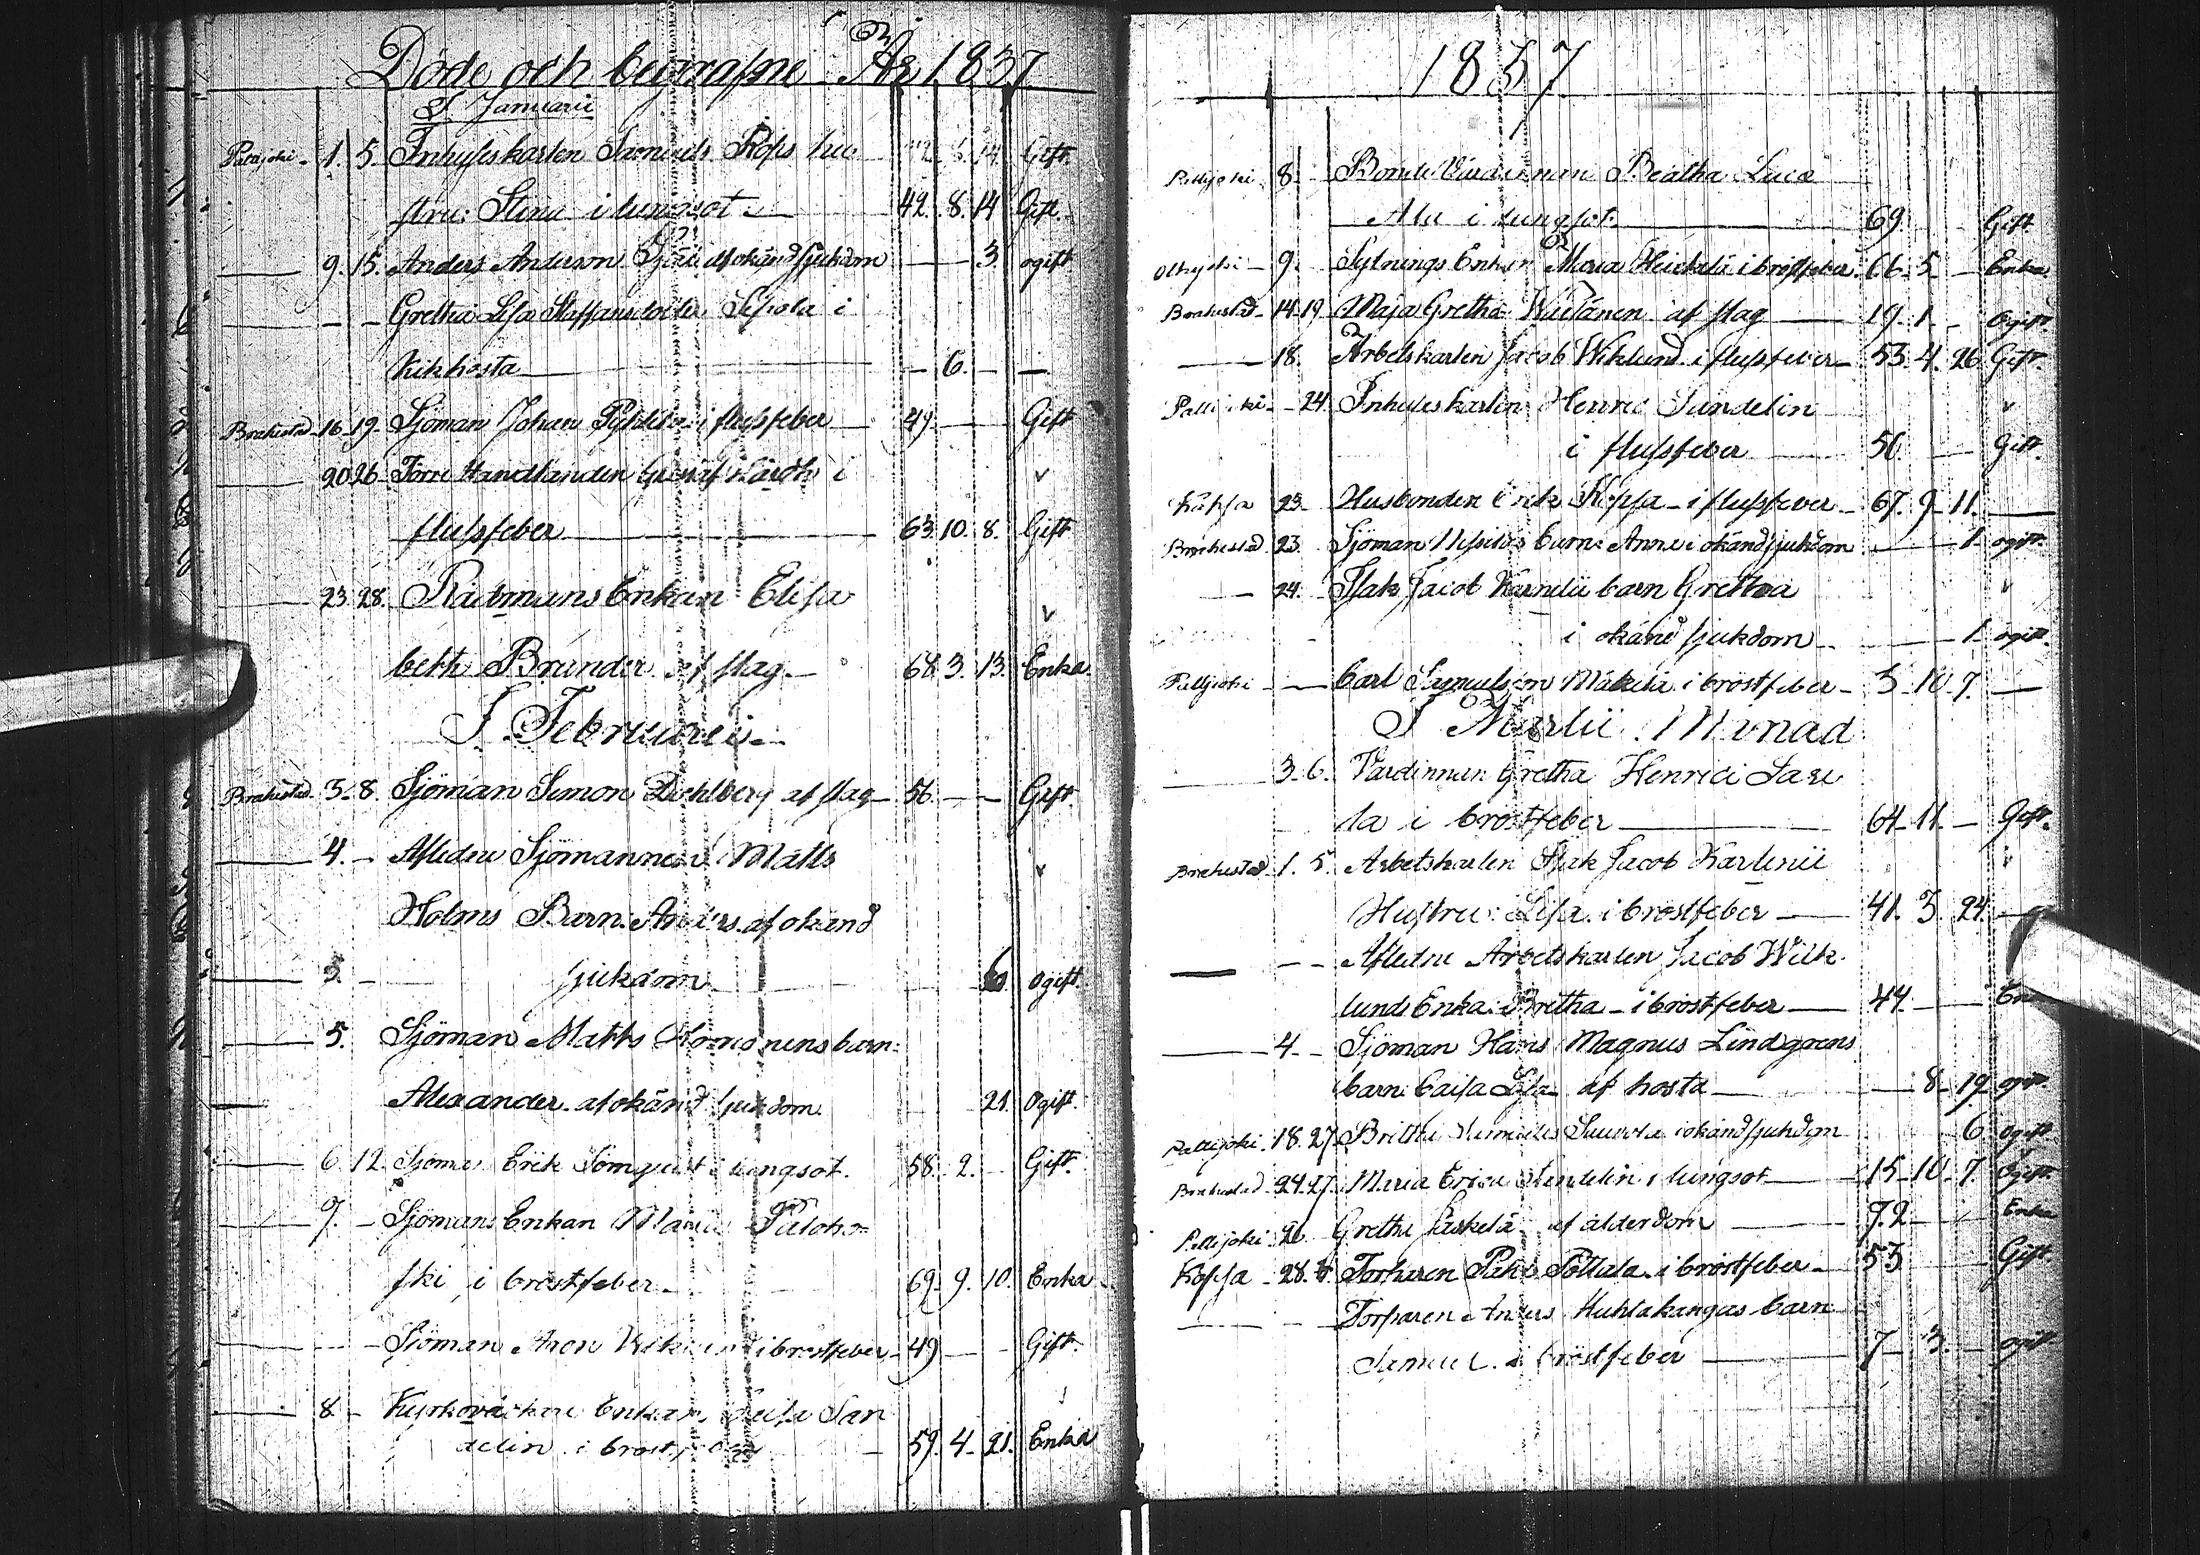 Döde och begrafne År 1837
I Januarii
Pattijoki 1. 5. Inhyses karlen Samuels Rops hu 42. 8. 14 Gift.
stru: Stina i lungsot 42. 8. 14 Gift.
9. 15. Anders Anderson af okänd sjukdom 3 ogift
Gretha Lisa Staffansdotter i
Kikhosta 6.
Brahestad 16 19. Sjöman Johan i flussfeber 49 Gift
20 26 Förre Handlanden i v
flussfeber 63. 10. 8. Gift
23. 28. Rådmans Enkan Elisa v
beth Brunder af slag 68. 3. 13. Enka
I Februarii
Brahestad 3. 8. Sjöman Simon Dahlberg af slag 56 Gift
4. Afledne Sjömannen Matts v
Holms Barn: Anders af okänd
5. sjukdom 6. Ogift
5. Sjöman Matts barn:
Alexander af okänd sjukdom 21. Ogift.
6 12 Sjöman Erik i lungsot. 58. 2. Gift.
7. Sjömans Enkan Maria Paloho=
ski i bröstfeber 69. 9. 10. Enka
Sjöman Aron i bröstfeber 49 Gift.
8. Enkan San
delin i bröstfeber 59. 4. 21. Enka
1837
Pattijoki 8. Bonde Värdinnan Beatha Lisa
Ala i lungsot. 69 Gift
Olkijoki 9. Sytnings Enkan Maria Heickilä i bröstfeber. 66. 5 Enka
Brahestad 14. 19 Maja Gretha af slag 19. 1 Ogift.
18. Arbetskarlen Jacob Wiklund i flussfeber 53. 4. 26 Gift.
Pattijoki 24 Inhyses karlen Henric Sandelin v
i flussfeber 56. Gift.
Kopsa 23. Husbonden Erik Kopsa i flussfeber 67. 9. 11.
Brahestad 23. Sjöman barn: Anna i okänd sjukdom 1. ogift.
24. Isak Jacob barn Gretha v
i okänd sjukdom 1. ogift.
Pattijoki Carl Samuelson Mäkelä i bröstfeber 3. 10. 7.
I Martii Månad
3. 6. Värdinnan Gretha Henrici Sare
la i bröstfeber 64. 11. Gift.
Brahestad 1. 5. Arbetskarlen Isak Jacob v
Hustru: Lisa i bröstfeber 41. 3. 24.
Afledne Arbetskarlen Jacob Wik
lunds Enka: Bretha i bröstfeber 44.
4. Sjöman Hans Magnus Lindgrens
barn: Caisa Lisa af hosta 8. 19 ogift.
Pattijoki 18. 27. i okänd sjukdom 6 ogift
Brahestad 24. 27. Maria Erica i lungsot 15. 10. 7. Ogift.
Pattijoki 26 Gretha af ålderdom 72 Enka
Kopsa 28. Torparen i bröstfeber 53 Gift.
Torparen Anders Huhtakangas barn
Samuel i bröstfeber 7. 3. ogift